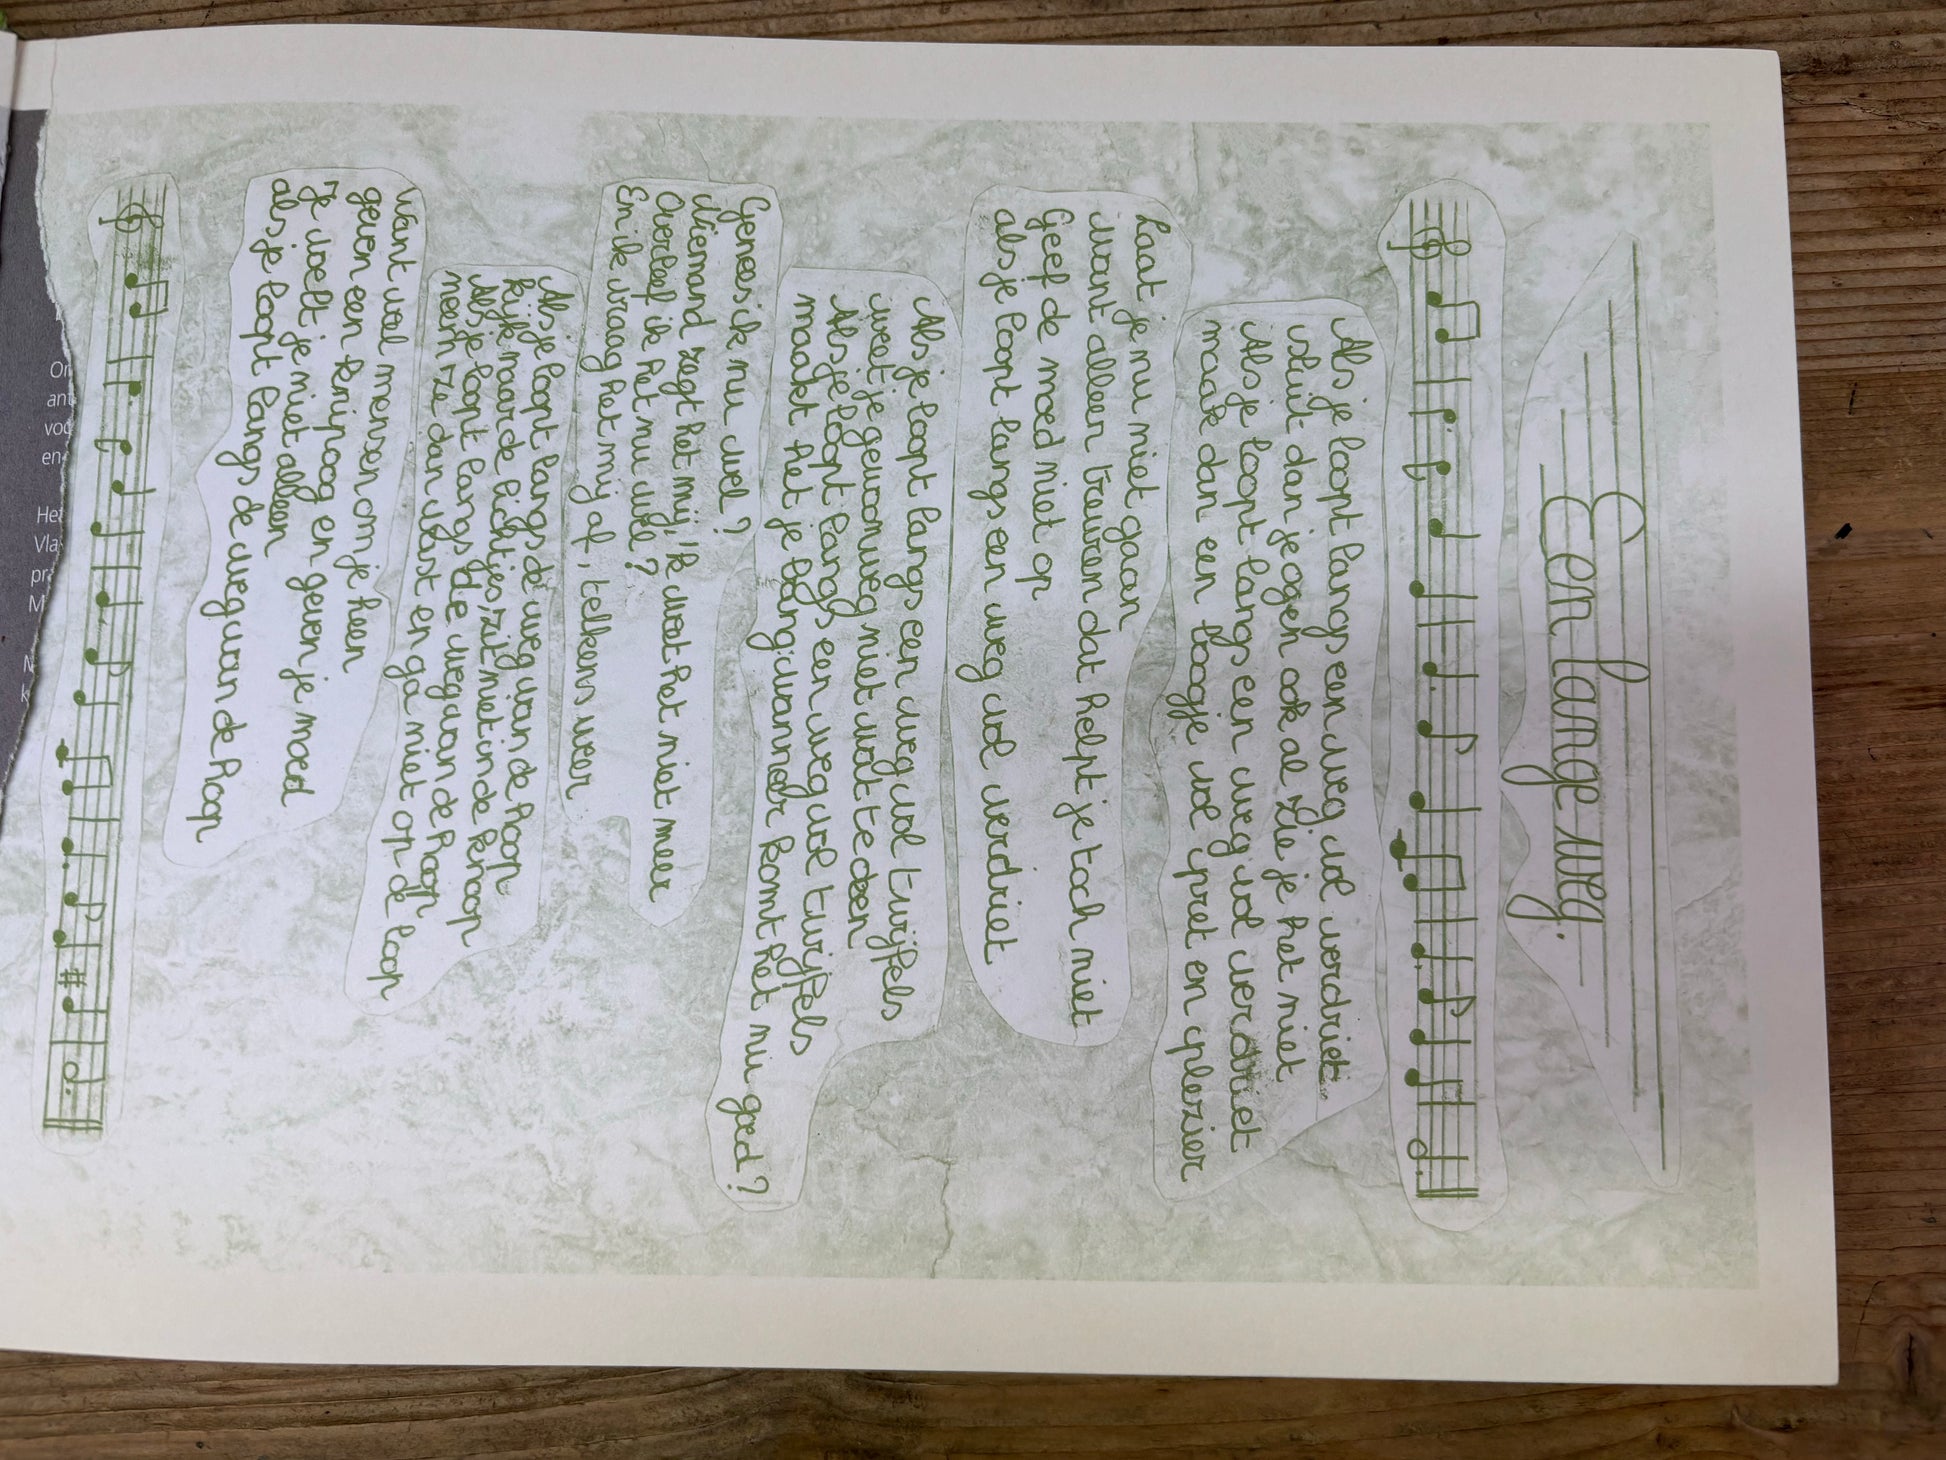 Een lange weg.
Als je loopt langs een weg vol verdriet
sluit dan je ogen ook al zie je het niet
Als je loopt langs een weg vol verdriet
maak dan een boogje vol pret en plezier
Laat je nu niet gaan
want alleen treuren dat helpt je toch niet
Geef de moed niet op
als je loopt langs een weg vol verdriet
Als je loopt langs een weg vol twijfels
weet je gewoonweg niet wat te doen
Als je loopt langs een weg vol twijfels
maakt het je bang: wanneer komt het nu goed?
Genees ik nu wel?
Niemand zegt het mij, 'k weet het niet meer
Overleef ik het nu wel?
En ik vraag het mij af, telkens weer
Als je loopt langs de weg van de hoop
kijk naar de lichtjes, zit niet in de knoop
Als je loopt langs de weg van de hoop
neem ze dan vast en ga niet op de loop
Want veel mensen om je heen
geven een knipoog en geven je moed
Je voelt je niet alleen
als je loopt langs de weg van de hoop
On
ant
voo
en
Het
Vla
pra
M
N
k